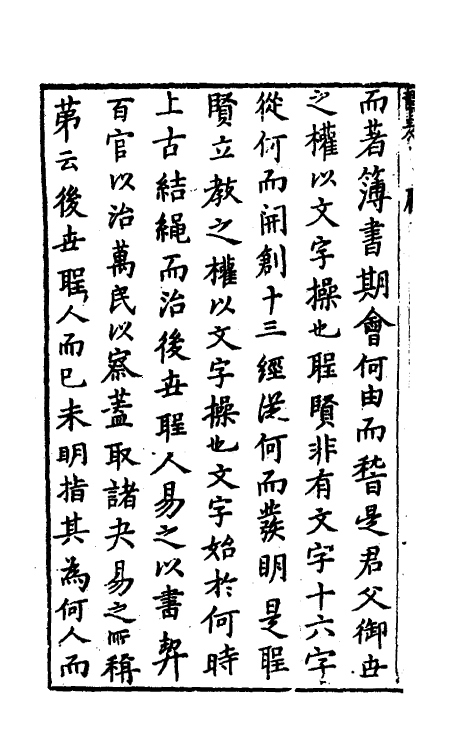 而著簿書期會何由而稽是君父御世
之權以文字操也聖賢非有文字十六字
從何而開創十三經從何而發明是聖
賢立教之權以文字操也文字始於何時
上古結繩而治後世聖人易之以書契
百官以治萬民以察蓋取諸夬易之所稱
苐云後世聖人而已未明指其為何人而